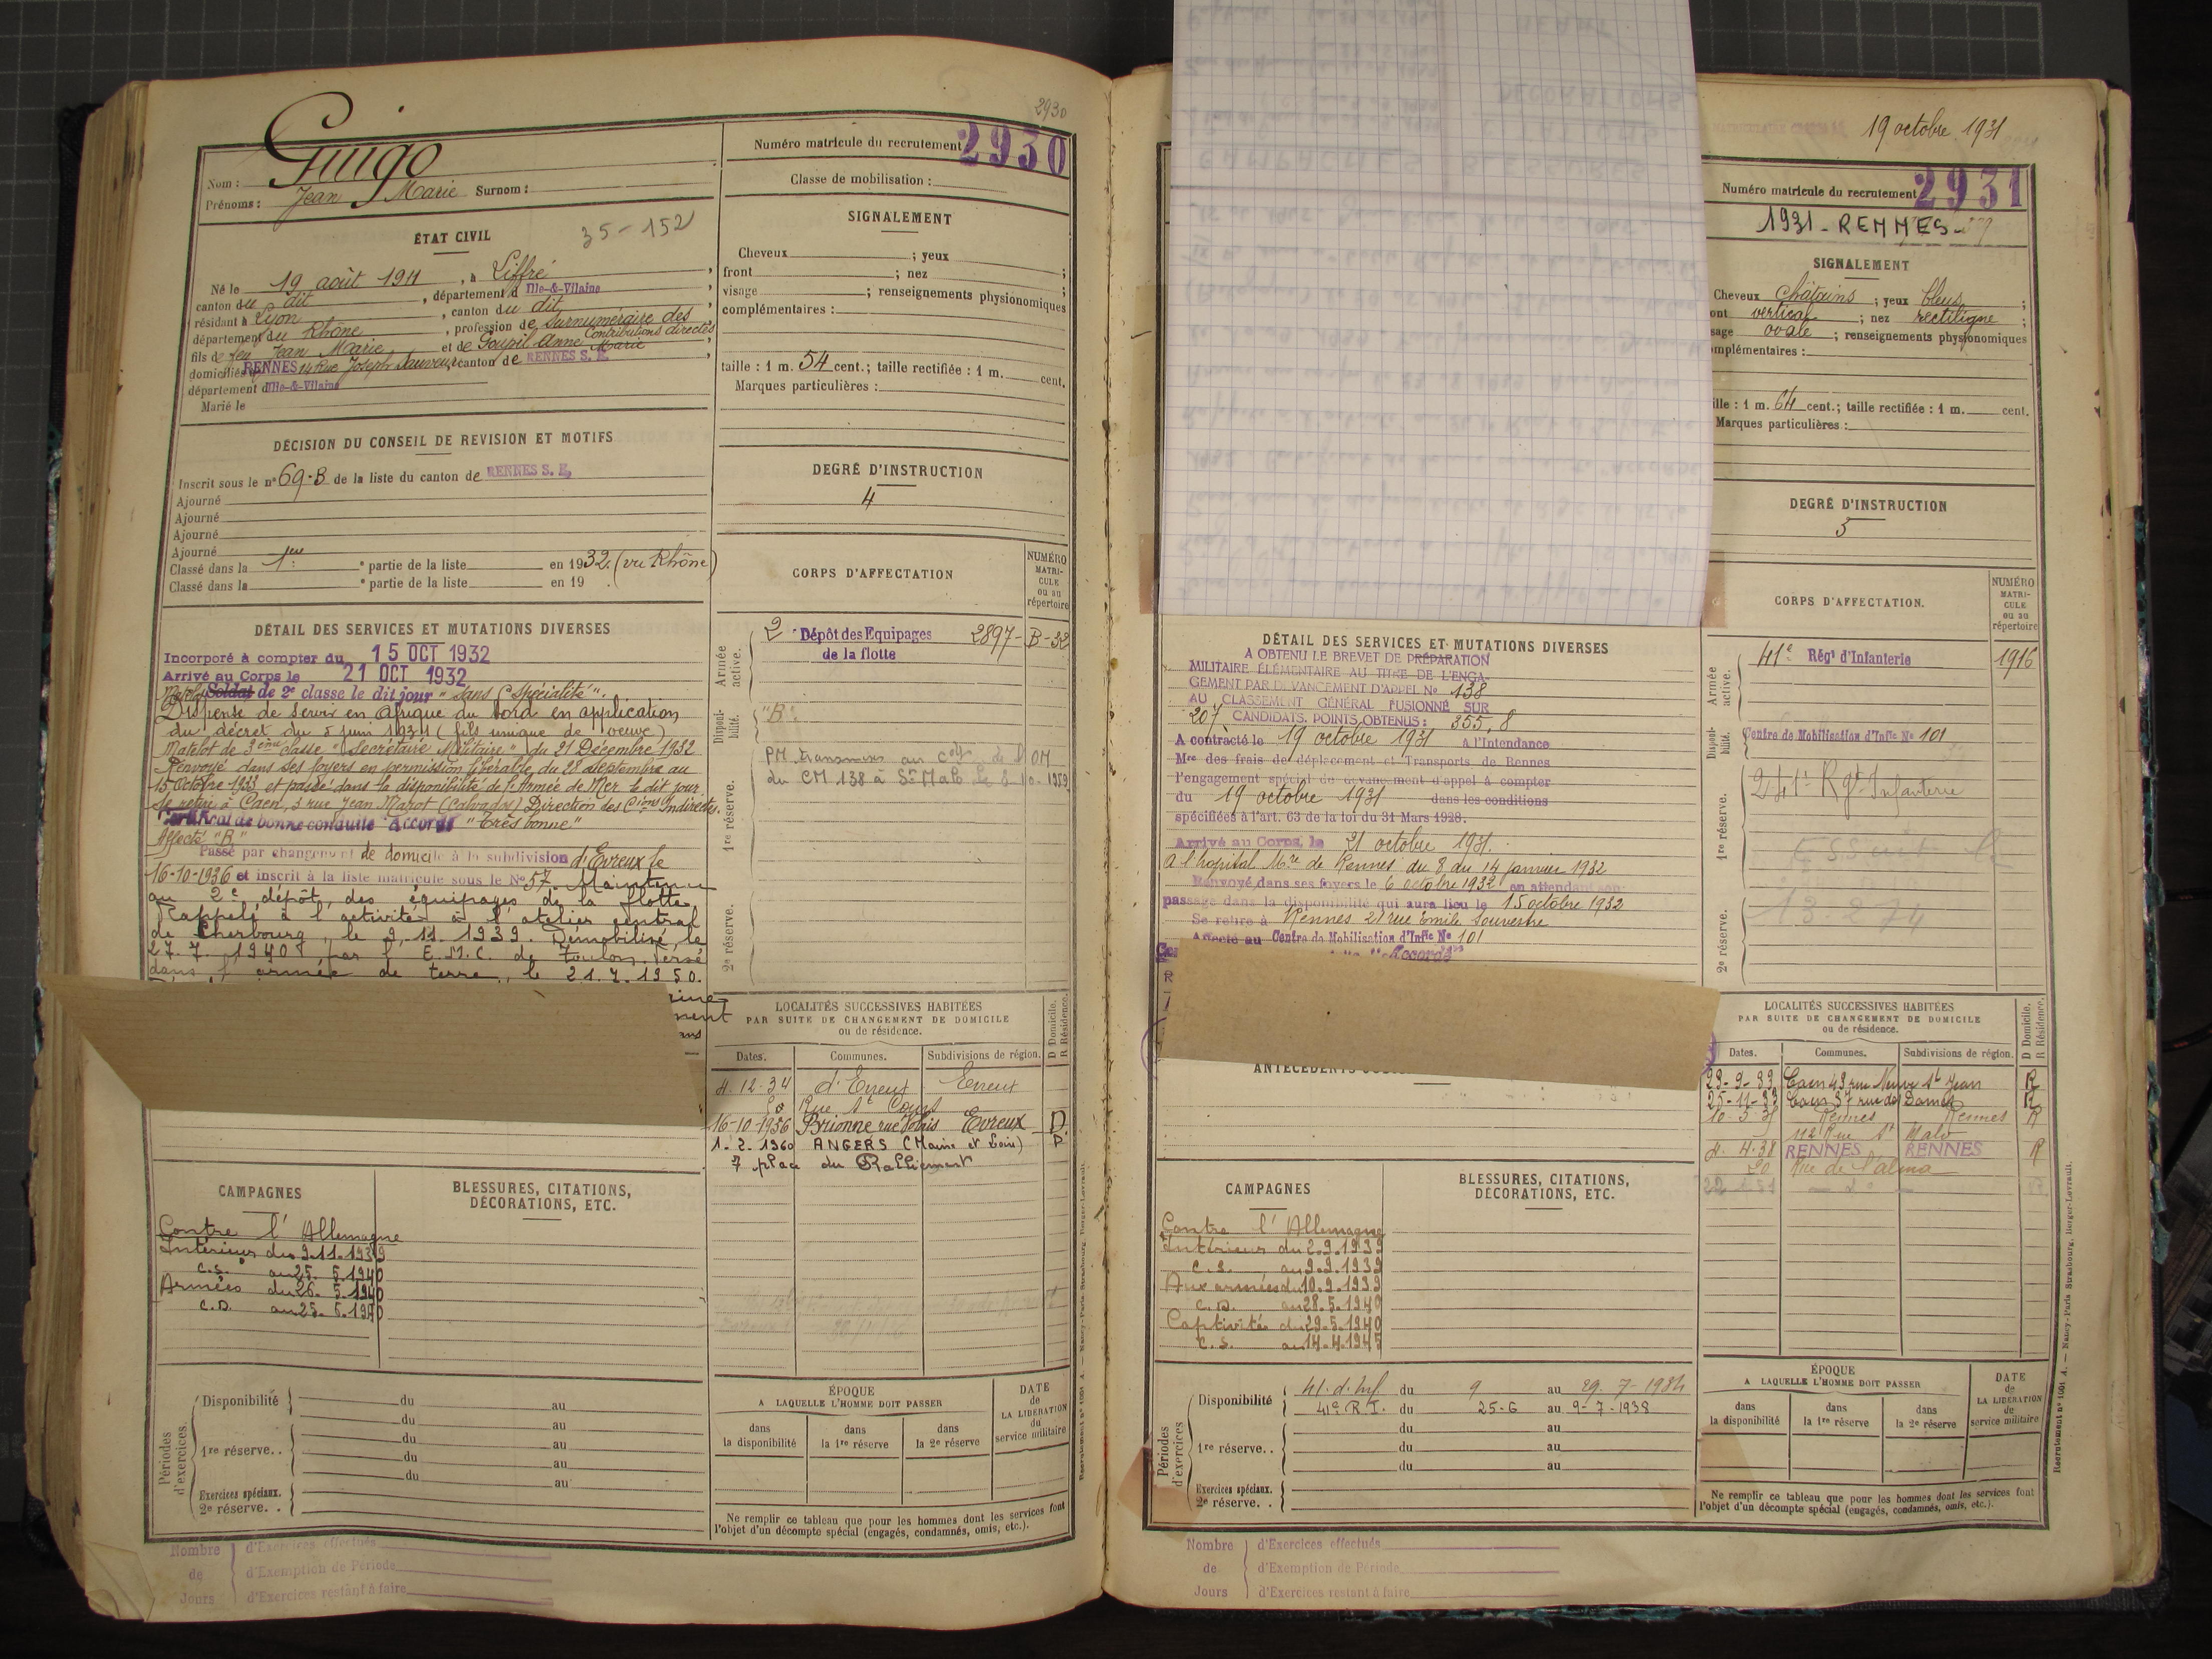 2930
Guigo
Nom :
Prénoms : Jean Marie Surnom :
Numéro matricule du recrutement 2930
Classe de mobilisation :
ÉTAT CIVIL
35-152
Né le 19 août 1911, à Liffré,
canton du dit, département d Ille-&-Vilaine
résidant à Lyon, canton du dit,
département du Rhône, profession de Surnuméraire des Contributions directes
fils de feu Jean Marie et de Goupil Anne Marie
domiciliés à RENNES 14 Rue Joseph Sauveur canton de RENNES S. E.
département d Ille-&-Vilaine
Marié le
DÉCISION DU CONSEIL DE REVISION ET MOTIFS
Inscrit sous le n° 69.B de la liste du canton de RENNES S. E.
Ajourné
Ajourné
Ajourné
Ajourné
Classé dans la 1re ° partie de la liste en 1932. (vu Rhône)
Classé dans la ° partie de la liste en 19 .
DÉTAIL DES SERVICES ET MUTATIONS DIVERSES
Incorporé à compter du 15 OCT 1932
Arrivé au Corps le 21 OCT 1932
Matelot Soldat de 2e classe le dit jour "sans spécialité".
Dispensé de servir en Afrique du Nord en application
du décret du 5 juin 1931 (fils unique de veuve)
Matelot de 3ème classe "Secrétaire Militaire" du 21 Décembre 1932
Renvoyé dans ses foyers en permission libérable du 28 Septembre au
15 Octobre 1933 et passé dans la disponibilité de l'Armée de Mer le dit jour.
Se retire à Caen, 3 rue Jean Marot (Calvados) Direction des Cions Indirectes.
Certificat de bonne conduite Accordé "très bonne"
Affecté "B"
Passé par changement de domicile à la subdivision d'Evreux le
16-10-1936 et inscrit à la liste matricule sous le No 57. Maintenu
au 2e dépôt des équipages de la flotte.
Rappelé à l'activité à l'atelier central
de Cherbourg, le 9.11.1939. Démobilisé le
27.7.1940 par l'E.M.C. de Toulon. Versé
dans l'armée de terre, le 21.7.1950.
CAMPAGNES
Contre l'Allemagne
Intérieur du 9.11.1939
C.S. au 25.5.1940
Armées du 26.5.1940
C.D. au 25.6.1940
BLESSURES, CITATIONS,
DÉCORATIONS, ETC.
Périodes d'exercices.
Disponibilité du au
du au
1re réserve.. du au
du au
du au
Exercices spéciaux.
2e réserve. .
Nombre de Jours
d'Exercices effectués
d'Exemption de Période
d'Exercices restant à faire
SIGNALEMENT
Cheveux ; yeux ;
front ; nez ;
visage ; renseignements physionomiques
complémentaires :
taille : 1 m. 54 cent.; taille rectifiée : 1 m. cent.
Marques particulières :
DEGRÉ D'INSTRUCTION
4
CORPS D'AFFECTATION
NUMÉRO MATRICULE ou au répertoire
Armée active.
2 Dépôt des Equipages 2897-B-32
de la flotte
Disponibilité.
"B"
1re réserve.
du CM 138 à St Malo
2e réserve.
LOCALITÉS SUCCESSIVES HABITÉES
PAR SUITE DE CHANGEMENT DE DOMICILE
ou de résidence.
D Domicile. R Résidence.
Dates. Communes. Subdivisions de région.
4.12-34 d'Evreux Evreux
16-10-1936 Brionne Evreux D.
1.2.1960 ANGERS (Maine et Loire) D
7 place du Ralliement
ÉPOQUE
A LAQUELLE L'HOMME DOIT PASSER
dans la disponibilité
dans la 1re réserve
dans la 2e réserve
DATE de LA LIBÉRATION du service militaire
Ne remplir ce tableau que pour les hommes dont les services font
l'objet d'un décompte spécial (engagés, condamnés, omis, etc.).
Recrutement n° 1001 A. — Nancy-Paris Strasbourg, Berger-Levrault.
19 octobre 1931
Numéro matricule du recrutement 2931
1931 - RENNES
SIGNALEMENT
Cheveux châtains ; yeux bleus ;
ont vertical ; nez rectiligne ;
sage ovale ; renseignements physionomiques
omplémentaires :
ille : 1 m. 64 cent.; taille rectifiée : 1 m. cent.
Marques particulières :
DEGRÉ D'INSTRUCTION
3
CORPS D'AFFECTATION.
NUMÉRO MATRICULE ou au répertoire
Armée active.
41e Régt d'Infanterie 1916
Disponibilité.
Centre de Mobilisation d'Infie No 101
1re réserve.
241e Rgt Infanterie
2e réserve.
DÉTAIL DES SERVICES ET MUTATIONS DIVERSES
A OBTENU LE BREVET DE PRÉPARATION
MILITAIRE ÉLÉMENTAIRE AU TITRE DE L'ENGA-
GEMENT PAR DEVANCEMENT D'APPEL No 138
AU CLASSEMENT GÉNÉRAL FUSIONNÉ SUR
207 CANDIDATS. POINTS OBTENUS : 355,8
A contracté le 19 octobre 1931 à l'Intendance
Mre des frais de déplacement et Transports de Rennes
l'engagement spécial de devancement d'appel à compter
du 19 octobre 1931 dans les conditions
spécifiées à l'art. 63 de la loi du 31 Mars 1928.
Arrivé au Corps, le 21 octobre 1931.
A l'hopital Mre de Rennes du 8 au 14 janvier 1932
Renvoyé dans ses foyers le 6 octobre 1932 en attendant son
passage dans la disponibilité qui aura lieu le 15 octobre 1932
Se retire à Rennes 21 rue Emile Souvestre
Affecté au Centre de Mobilisation d'Infie No 101
"Accordé"
LOCALITÉS SUCCESSIVES HABITÉES
PAR SUITE DE CHANGEMENT DE DOMICILE
ou de résidence.
D Domicile. R Résidence.
Dates. Communes. Subdivisions de région.
29-9-33 Caen 43 rue Neuve St Jean R
25-11-33 Caen 37 rue des Dames R
Rennes Rennes R
112 Rue St Malo
4.4.38 RENNES RENNES R
20 Rue de l'alma
CAMPAGNES
Contre l'Allemagne
Intérieur du 2.9.1939
C.S. au 9.9.1939
Aux armées du 10.9.1939
C.D. au 28.5.1940
Captivité du 29.5.1940
C.S. au 14.4.1945
BLESSURES, CITATIONS,
DÉCORATIONS, ETC.
Périodes d'exercices
Disponibilité 41.d.Inf. du 9 au 29-7-1934
41e R.I. du 25-6 au 9-7-1938
du au
1re réserve. . du au
du au
Exercices spéciaux.
2e réserve. .
ÉPOQUE
A LAQUELLE L'HOMME DOIT PASSER
dans la disponibilité
dans la 1re réserve
dans la 2e réserve
DATE de LA LIBÉRATION du service militaire
Ne remplir ce tableau que pour les hommes dont les services font
l'objet d'un décompte spécial (engagés, condamnés, omis, etc.).
Recrutement n° 1001 A. — Nancy-Paris Strasbourg, Berger-Levrault.
Nombre de Jours
d'Exercices effectués
d'Exemption de Période
d'Exercices restant à faire